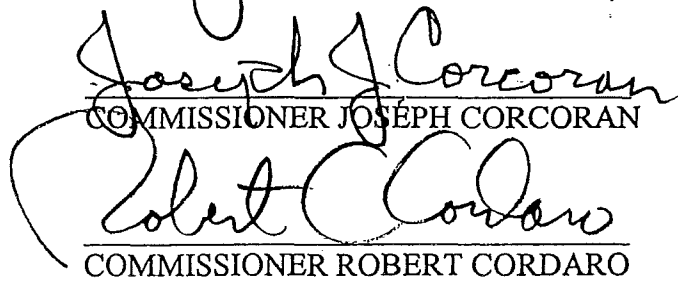 Joseph J Corcoran
COMMISSIONER JOSEPH CORCORAN
Robert C Cordaro
COMMISSIONER ROBERT CORDARO